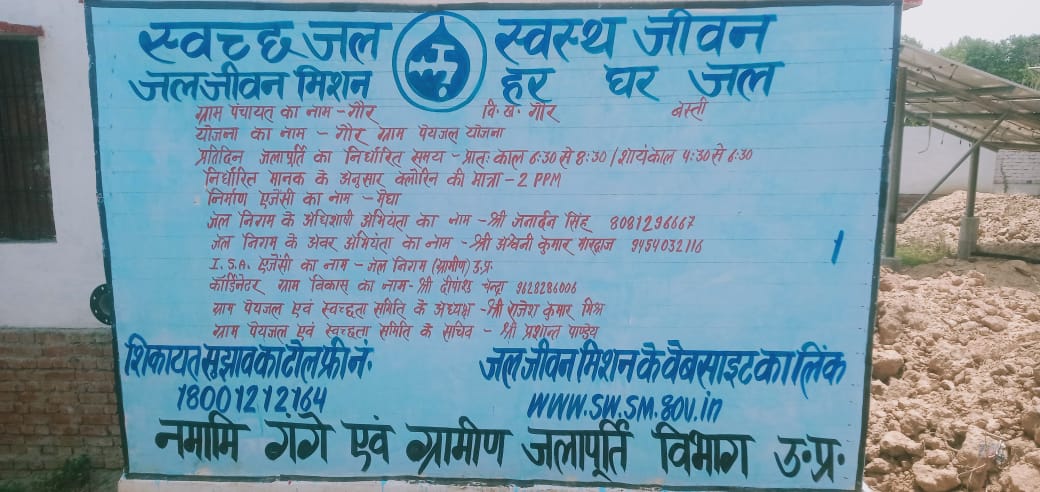 स्वच्छ जल स्वस्थ जीवन
जल जीवन मिशन हर घर जल
ग्राम पंचायत का नाम - गौर वि. ख. गौर बस्ती
योजना का नाम - गौर ग्राम पेयजल योजना
प्रतिदिन जलापूर्ति का निर्धारित समय - प्रातः काल 6:30 से 8:30 / शायंकाल 4:30 से 6:30
निर्धारित मानक के अनुसार क्लोरिन की मात्रा - 2 PPM
निर्माण एजेंसी का नाम - मेघा
जल निगम के अधिशाषी अभियंता का नाम - श्री जनार्दन सिंह 8081296667
जल निगम के अवर अभियंता का नाम - श्री अश्वनी कुमार भारद्वाज 9454032116
I.S.A. एजेंसी का नाम - जल निगम (ग्रामीण) उ.प्र.
कॉर्डिनेटर ग्राम विकास का नाम - श्री दीपांशु चन्द्रा 9628286006
ग्राम पेयजल एवं स्वच्छता समिति के अध्यक्ष - श्री राजेश कुमार मिश्र
ग्राम पेयजल एवं स्वच्छता समिति के सचिव - श्री प्रशान्त पाण्डेय
शिकायत सुझाव का टोल फ्री नं. जल जीवन मिशन के वेबसाइट का लिंक
18001212164 www.sw.sm.gov.in
नमामि गंगे एवं ग्रामीण जलापूर्ति विभाग उ.प्र.